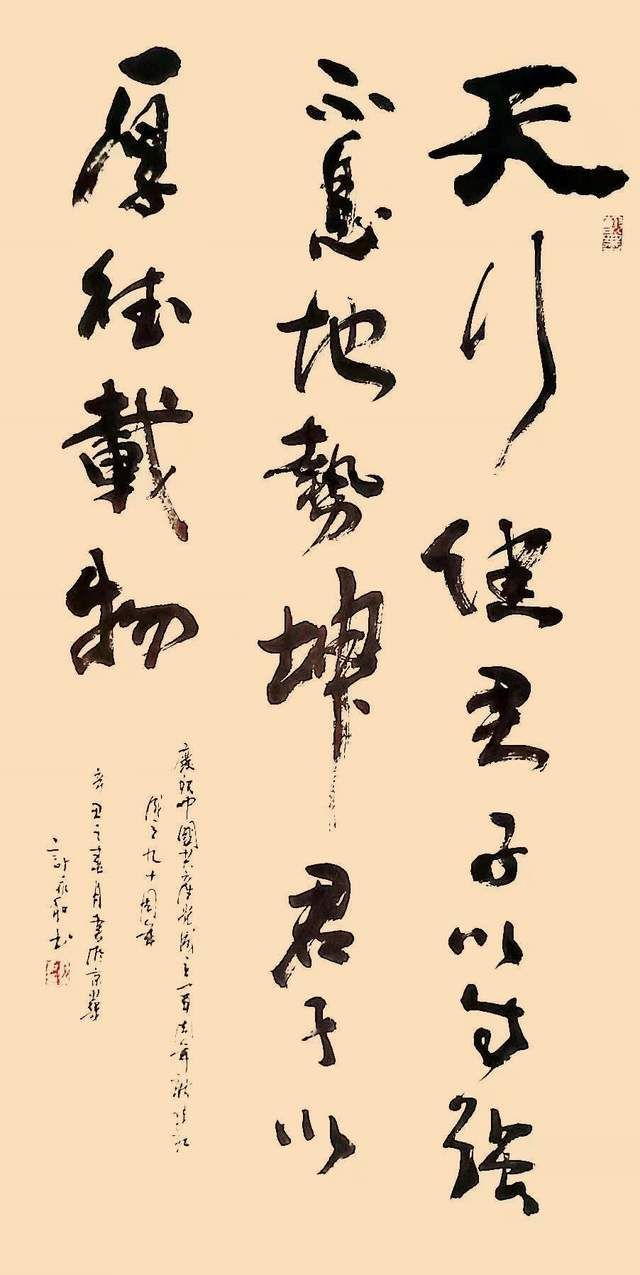 天行健君子以自强
不息地勢坤君子以
厚德載物
慶祝中國共產黨成立一百周年
九十周年
辛丑之春月書於京華